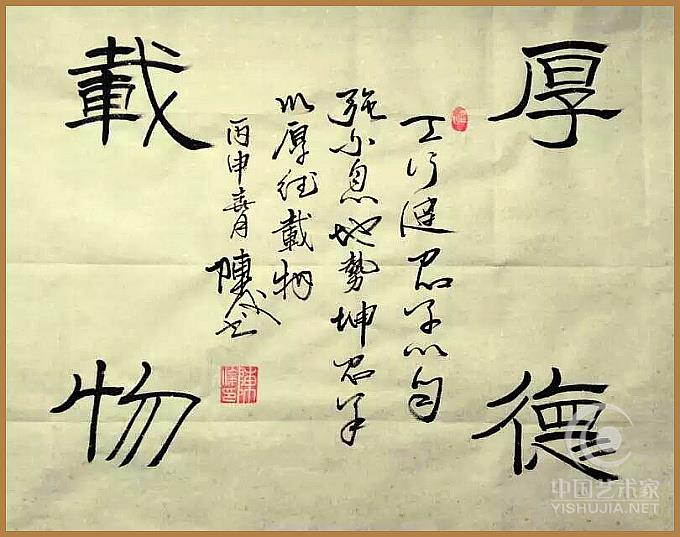 厚
德
天行健君子以自
強不息地勢坤君子
以厚德載物
丙申春月 陳
載
物
中国艺术家
YISHUJIA.NET